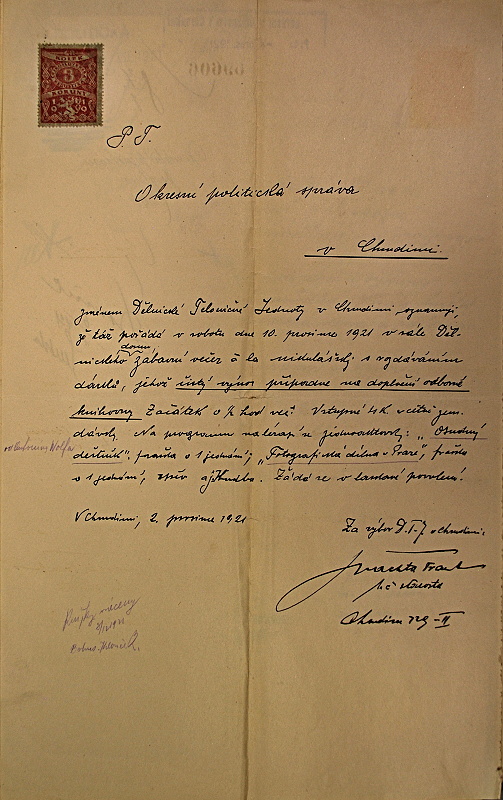 KOLEK
3
KORUNY
1919
P. T.
Okresní politická správa
v Chrudimi.
Jménem Dělnické Tělocvičné Jednoty v Chrudimi oznamuji,
že táž pořádá v sobotu dne 10. prosince 1921 v sále Děl-
domu
nického zábavní večer à la mikulášský s rozdáváním
dárků, jehož čistý výnos připadne na doplnění odborné
knihovny. Začátek o ½ hod več. Vstupné 4 K včítaje zem.
dávky. Na programu nalézají se jednoaktovky: „Osudný
od Antonína Wolfa
deštník", fraška o 1 jednání; „Fotografická dílna v Praze", fraška
o 1 jednání, zpěv a hudba. Žádá se o laskavé povolení.
V Chrudimi, 2. prosince 1921
Za výbor D. T. J. v Chrudimi:
t. č. starosta
Chrudim 729-II